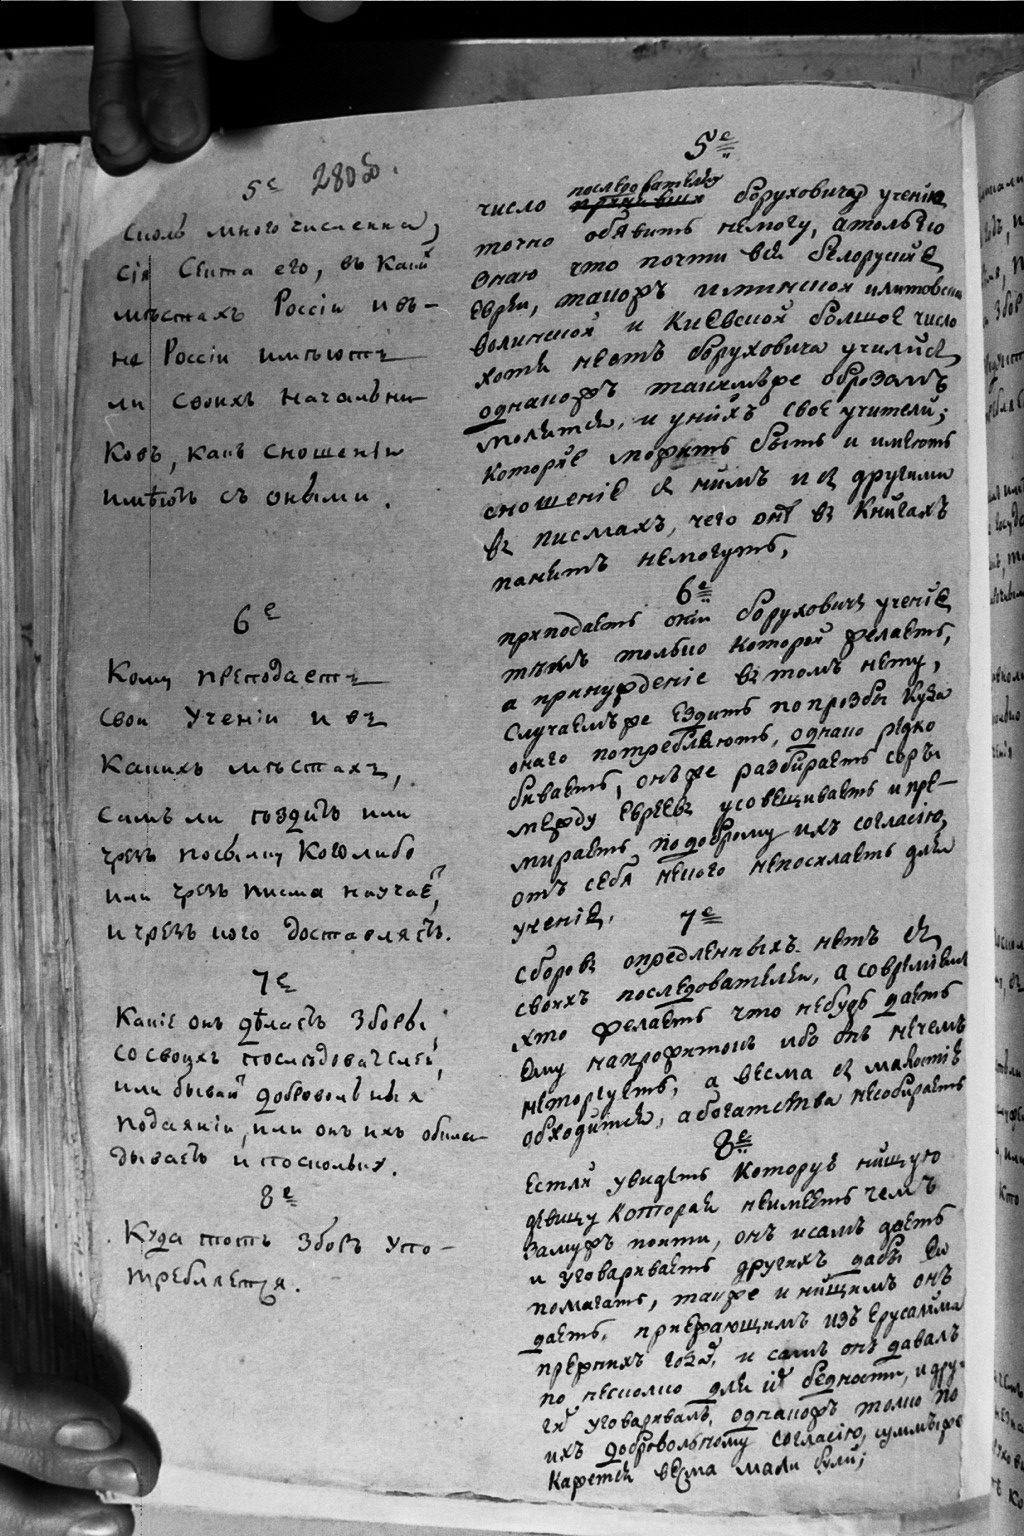 5е 280б.
Сколь многочисленна,
сія Секта его, въ какихъ
мѣстахъ Россіи и въ-
не Россіи имѣютъ
ли своихъ начальни-
ковъ, какъ сношеніи
имѣютъ съ оными.
6е
Кому преподаетъ
свои ученіи и въ
какихъ мѣстахъ,
самъ ли ѣздитъ или
чрезъ посылку коголибо
или чрезъ писма научае,
и чрезъ кого доставляетъ.
7е
Какіе онъ дѣлаетъ зборы
со своихъ послѣдователей,
или бывай доброволныя
подаяніи, или онъ ихъ обкла-
дываетъ и поскольку.
8е
Куда тотъ зборъ упо-
требляется.
5е
последователя
число боруховича ученію
точно обявить немогу, атолько
знаю что почти вся белоруские
евреи, такожъ и минской илитовской
волинской и Киевской болшое число
хотя нетъ боруховича училися,
однакожъ такимъже образомъ
молятся, и унихъ свое учители;
которые можитъ быть и имеютъ
сношение з нимъ и з другими
въ писмахъ, чего оне въ книгахъ
немогутъ,
6е
преподаетъ оній боруховичъ учение
темъ толко которой желаетъ,
а принуждение втомъ нету,
Случаемъже ездитъ попрозбы куда
онаго потребляютъ, однако редко
биваетъ, онъже разбираетъ соръ
между евреевъ усовещиваетъ и пре-
миряетъ подоброму ихъ согласію,
отъ себя некого непосилаетъ для
учения.
7е
сборовъ определенныхъ нетъ съ
своихъ последователи, а совремями
хто желаетъ что небудь даетъ
ему напрожитокъ ибо онъ нечемъ
неторгуетъ, а весма з малостіе
обходится, абогатства несобираетъ
8е
Естли увидетъ которуе нищую
девицу которая неимеетъ чемъ
замужъ поити, онъ исамъ даетъ
и уговариваетъ другихъ дабы ей
помагать, также и нищимъ онъ
даетъ, приежающимъ изъ Ерусалима
прежнихъ годъ, и самъ онъ давалъ
по несколко для ихъ бедности, и дру-
гихъ уговаривалъ, однакожъ толко по
ихъ доброволному согласию, суммыже
кажется весма мали були;